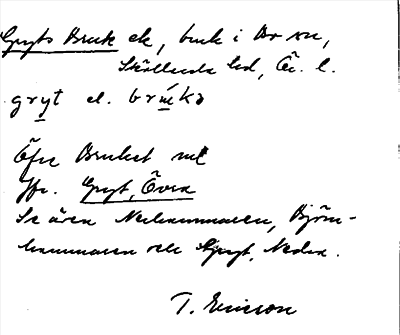 Gryts Bruk el, bruk i Bo sn,
Sköllersta hd, Ör. l.
gryt el. brúkə
Öfre Bruket
Jfr. Gryt, Övra
Se även Nerhammaren, Björn-
hammaren och Gryt, Nedra.
T. Ericsson